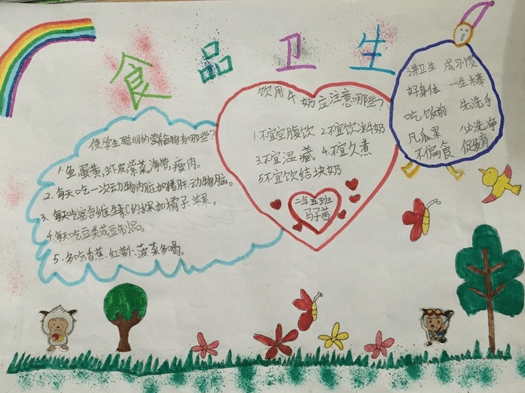 食品卫生
使学生聪明的食物有那些?
1.鱼、蛋黄、虾皮、紫菜、海带、瘦肉。
2.每天吃一次动物内脏如猪肝动物脑。
3.每天吃富含维生素C的果如橘子苹果。
4.每天吃豆类或豆制品。
5.多吃香蕉、红
菠菜
饮用牛奶应注意哪些?
1.不宜空腹饮 2.不宜饮冰牛奶
3.不宜温藏 4.不宜久煮
5.不宜饮结块奶
二年五班
马子茜
讲卫生 成习惯
好身体 一生棒
吃饭前 先洗手
凡瓜果 必洗净
不偏食 保发育